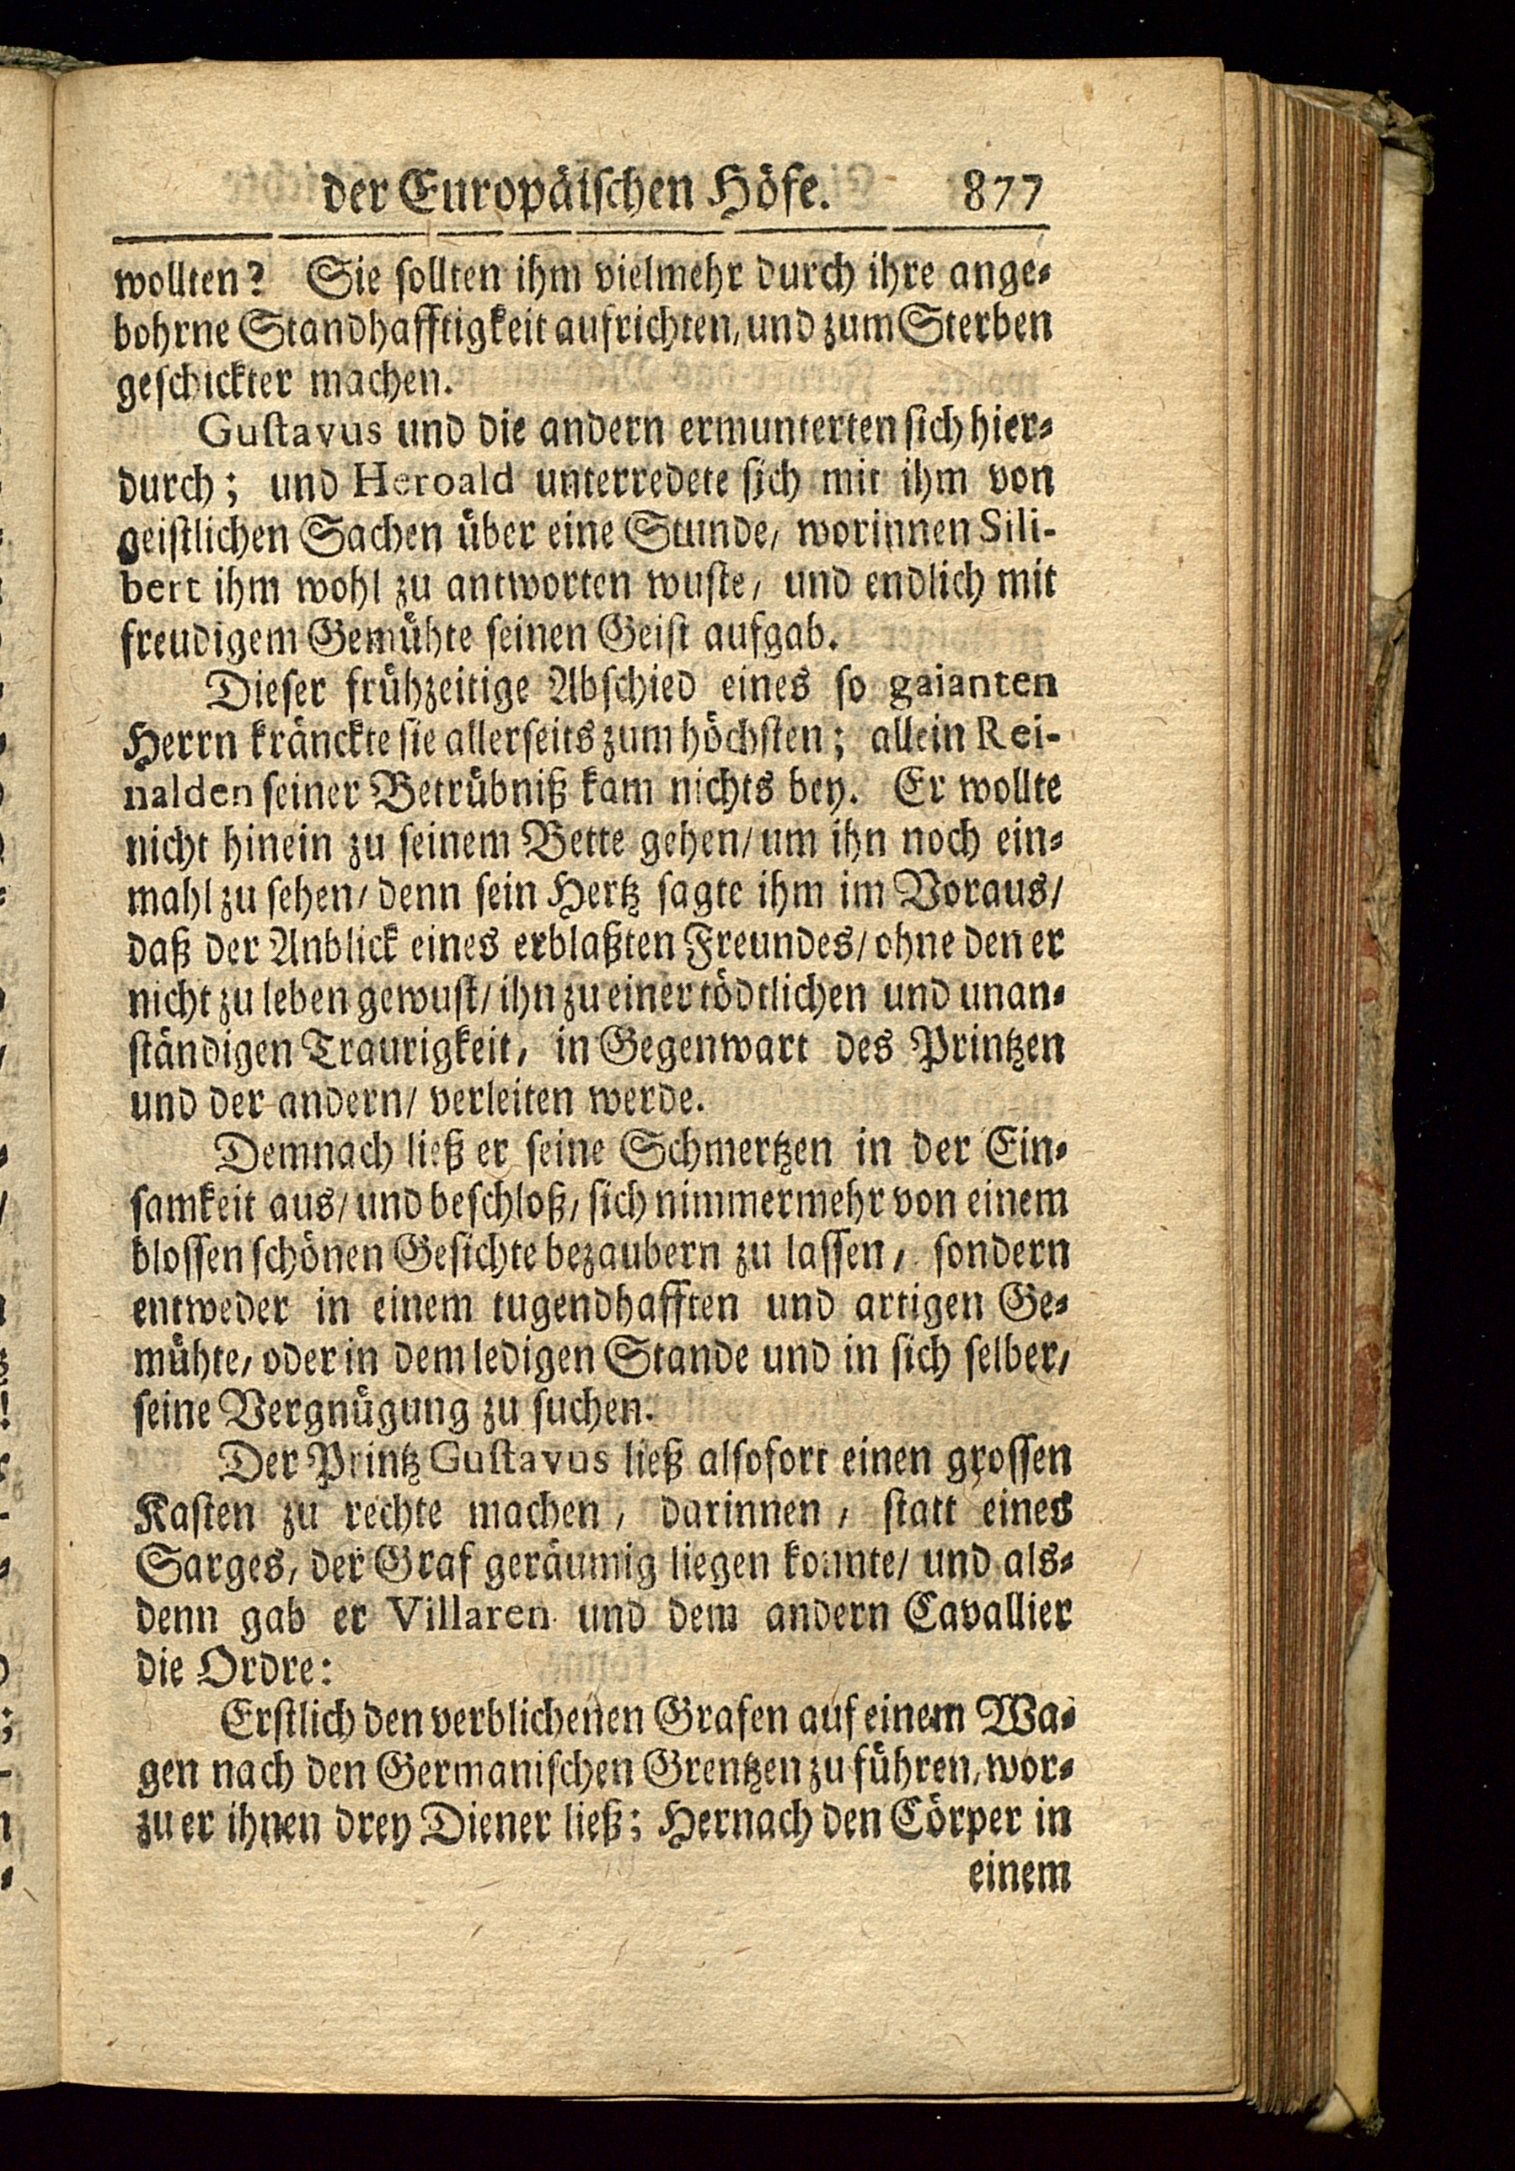 der Europäischen Höfe. 877
wollten? Sie sollten ihm vielmehr durch ihre ange-
bohrne Standhafftigkeit aufrichten, und zum Sterben
geschickter machen.
Gustavus und die andern ermunterten sich hier-
durch; und Heroald unterredete sich mit ihm von
geistlichen Sachen über eine Stunde, worinnen Sili-
bert ihm wohl zu antworten wuste, und endlich mit
freudigem Gemühte seinen Geist aufgab.
Dieser frühzeitige Abschied eines so galanten
Herrn kränckte sie allerseits zum höchsten; allein Rei-
nalden seiner Betrübniß kam nichts bey. Er wollte
nicht hinein zu seinem Bette gehen/ um ihn noch ein-
mahl zu sehen/ denn sein Hertz sagte ihm im Voraus/
daß der Anblick eines erblaßten Freundes/ ohne den er
nicht zu leben gewust/ ihn zu einer tödtlichen und unan-
ständigen Traurigkeit, in Gegenwart des Printzen
und der andern/ verleiten werde.
Demnach ließ er seine Schmertzen in der Ein-
samkeit aus/ und beschloß, sich nimmermehr von einem
blossen schönen Gesichte bezaubern zu lassen, sondern
entweder in einem tugendhafften und artigen Ge-
mühte, oder in dem ledigen Stande und in sich selber,
seine Vergnügung zu suchen.
Der Printz Gustavus ließ alsofort einen grossen
Kasten zu rechte machen, darinnen, statt eines
Sarges, der Graf geräumig liegen konnte/ und als-
denn gab er Villaren und dem andern Cavallier
die Ordre:
Erstlich den verblichenen Grafen auf einem Wa-
gen nach den Germanischen Grentzen zu führen, wor-
zu er ihnen drey Diener ließ; Hernach den Cörper in
einem